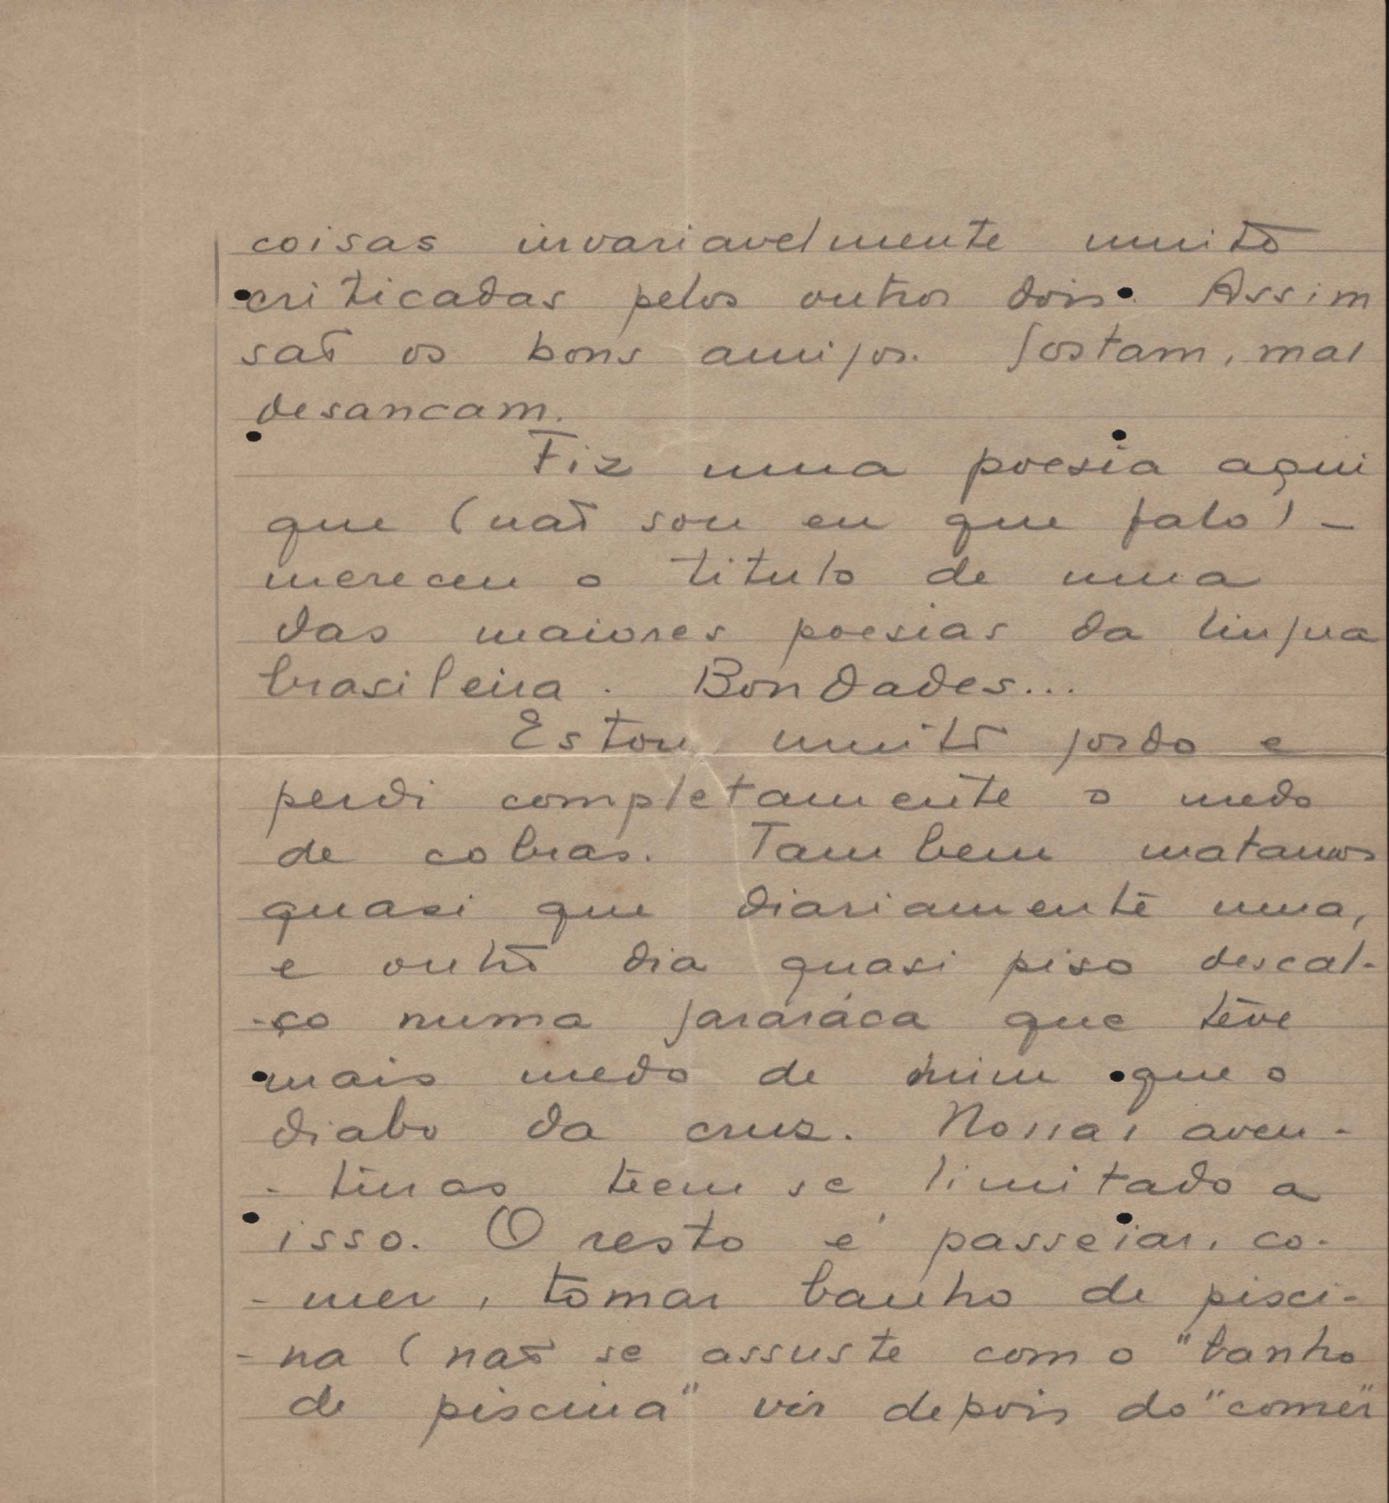 coisas invariavelmente muito
criticadas pelos outros dois. Assim
são os bons amigos. Gostam, mas
desancam.
Fiz uma poesia aqui
que (não sou eu que falo) -
mereceu o titulo de uma
das maiores poesias da lingua
brasileira. Bondades...
Estou muito gordo e
perdi completamente o medo
de cobras. Tambem matamos
quasi que diariamente uma,
e outro dia quasi piso descal-
-ço numa jararáca que têve
mais medo de mim que o
diabo da cruz. Nossas aven-
-turas teem se limitado a
isso. O resto é passeiar, co-
-mer, tomar banho de pisci-
-na (não se assuste com o "banho
de piscina" vir depois do "comer"